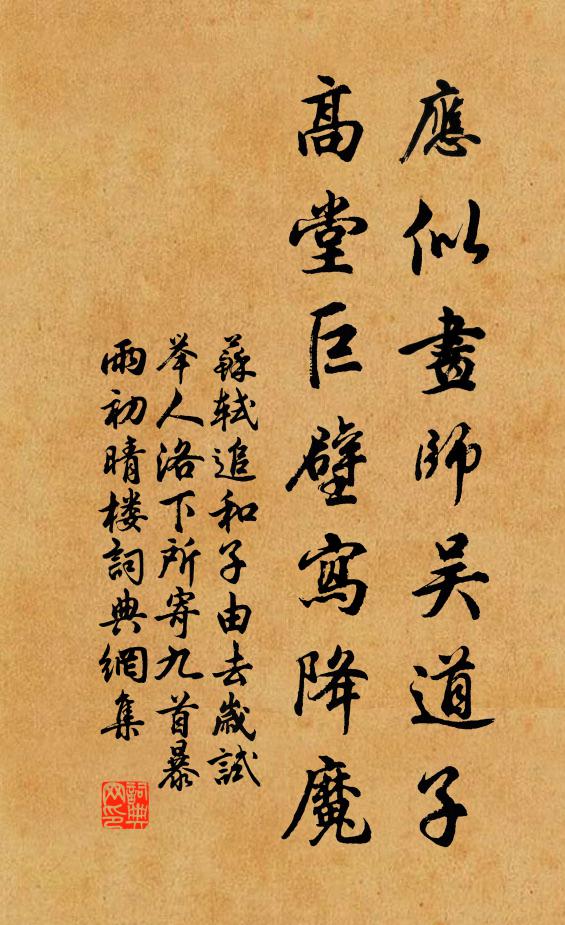 應似畫師吴道子
高堂巨壁寫降魔
蘇軾追和子由去歲試
举人洛下所寄九首暴
雨初晴楼詞典網集
詞典
网印